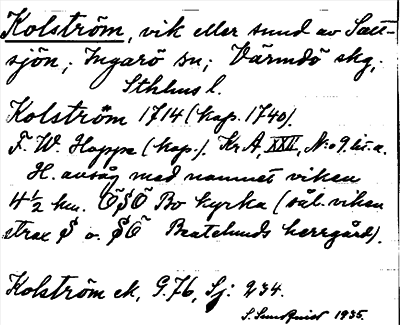 Kolström, vik eller sund av Salt-
sjön; Ingarö sn; Värmdö skg;
Sthlms l.
Kolström 1714 (kop. 1740).
F. W. Hoppe (kop.). Kr. A, XXII, No 9 lit. a.
H. avsåg med namnet viken
4½ km. ÖSÖ Bo kyrka (sål. viken
strax S o. SÖ Beatelunds herrgård).
Kolström ek, G. 76, Sj: 234.
S. Sundqvist 1935.